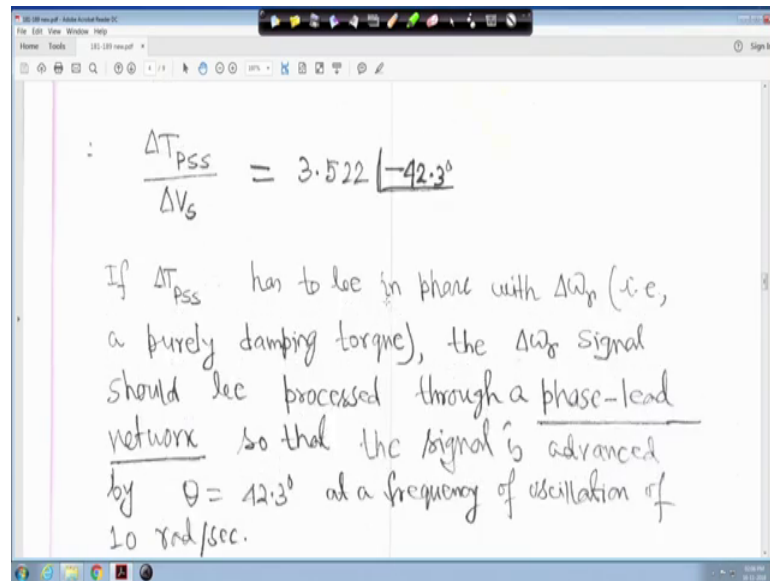 181-189 new.pdf - Adobe Acrobat Reader DC
File Edit View Window Help
Home Tools 181-189 new.pdf × Sign In
∴ ΔT_PSS / ΔV_S = 3.522 ∠-42.3°
If ΔT_PSS has to be in phase with Δω_r (i.e,
a purely damping torque), the Δω_r signal
should be processed through a phase-lead
network so that the signal is advanced
by θ = 42.3° at a frequency of oscillation of
10 rad/sec.